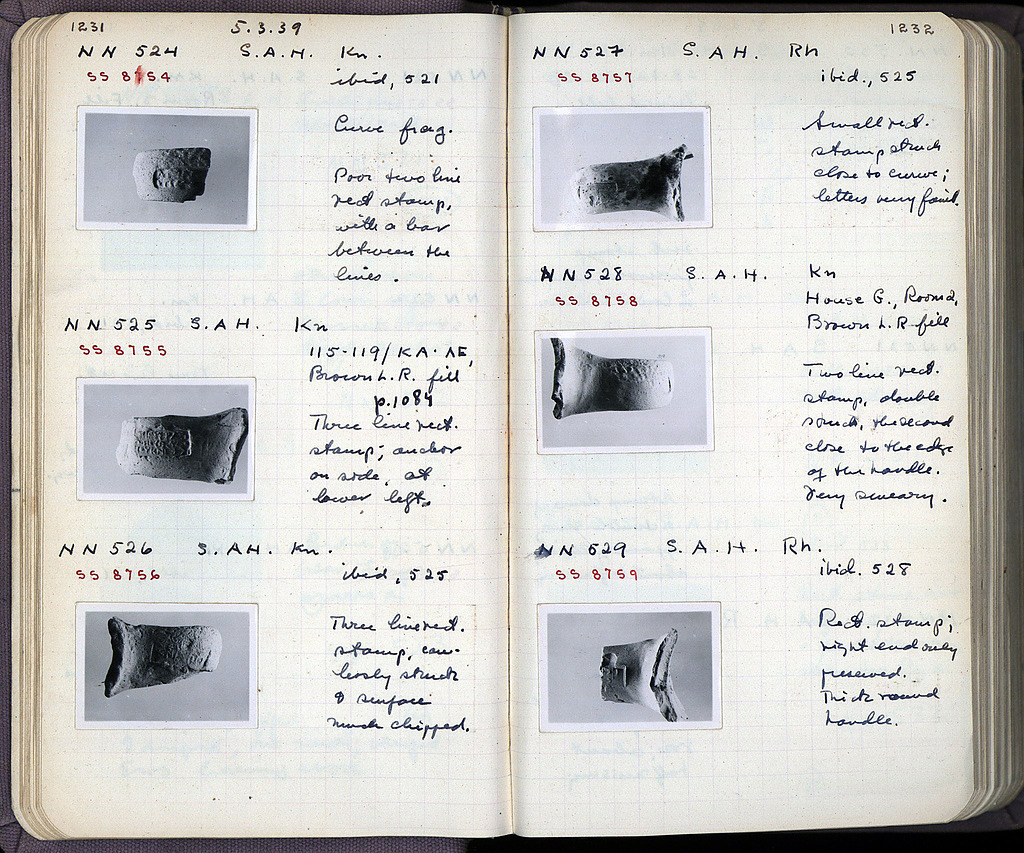 1231 5.3.39
NN 524 S.A.H. Kn.
SS 8754 ibid, 521
Curve frag.
Poor two line
rect stamp,
with a bar
between the
lines.
NN 525 S.AH. Kn
SS 8755
115-119/KA·ΛE,
Brown L.R. fill
p.1084
Three line rect.
stamp; anchor
on side, at
lower left.
NN 526 S.AH. Kn.
SS 8756 ibid, 525
Three line rect.
stamp, care-
lessly struck
& surface
much chipped.
1232
NN 527 S.AH. Rh
SS 8757 ibid., 525
Small rect.
stamp struck
close to curve;
letters very faint.
NN 528 S.A.H. Kn
SS 8758 House G., Room 2,
Brown L.R fill
Two line rect.
stamp, double
struck, the second
close to the edge
of the handle.
Very smeary.
NN 529 S.A.H. Rh.
SS 8759 ibid. 528
Rect. stamp;
right end only
preserved.
Thick round
handle.